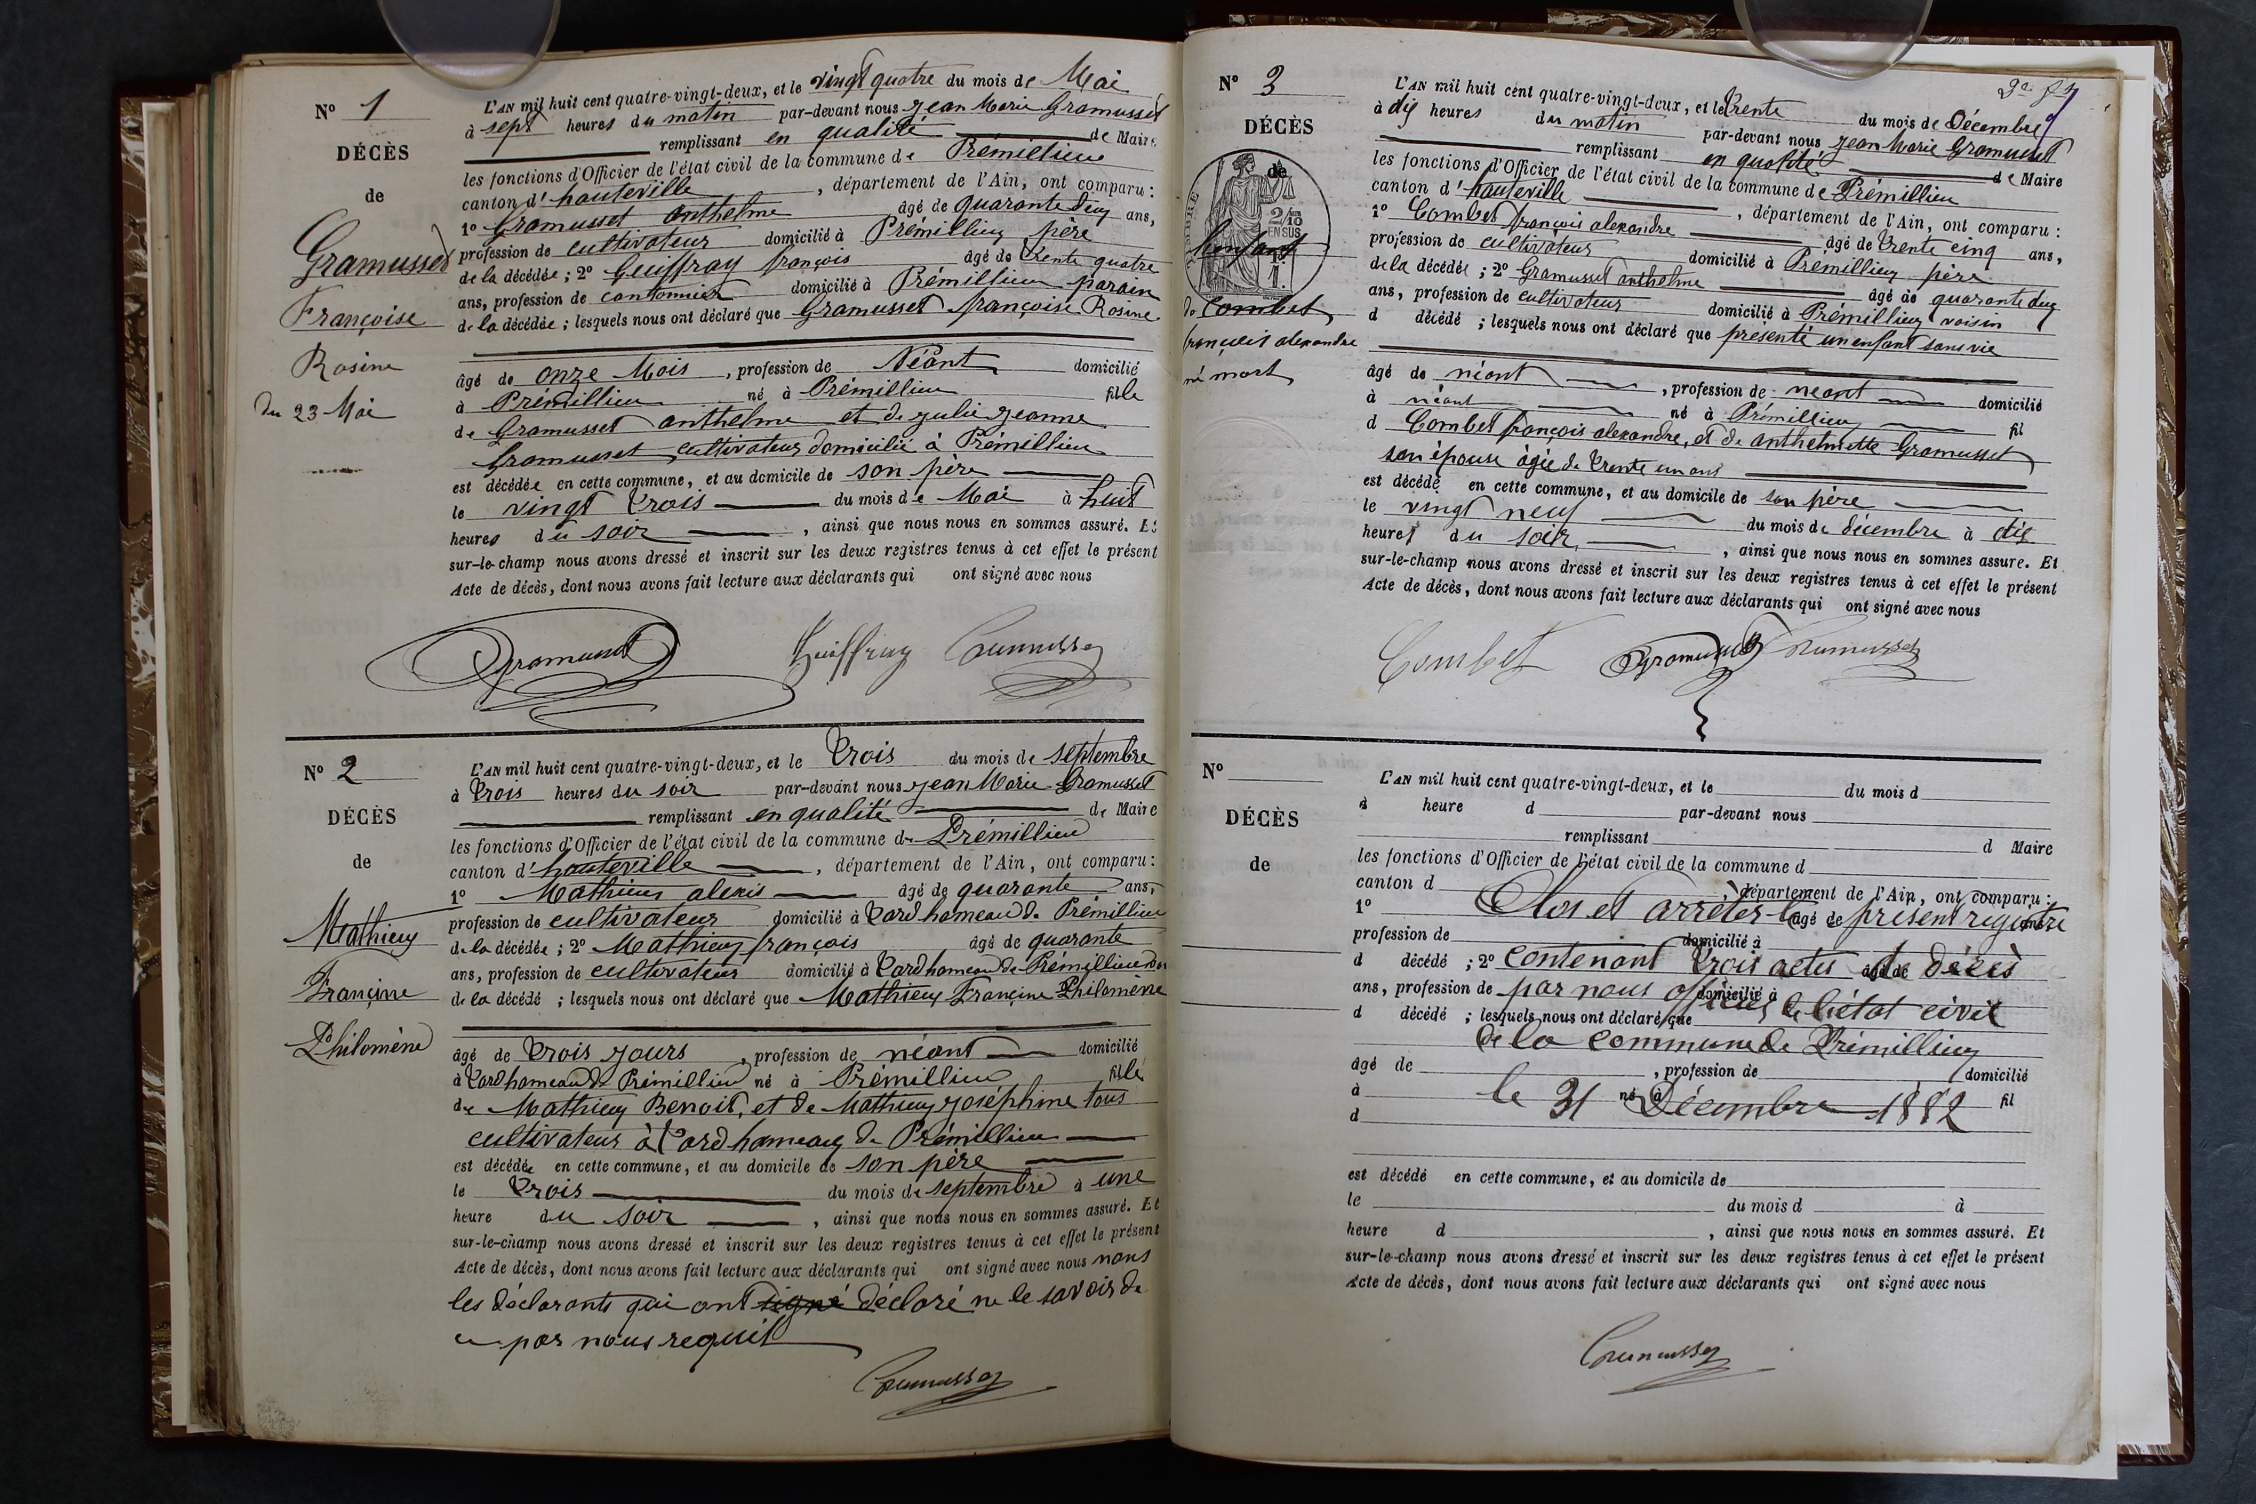 N° 1
DÉCÈS
de
Gramusset
Françoise
Rosine
du 23 Mai
L'AN mil huit cent quatre-vingt-deux, et le vingt quatre du mois de Mai
à sept heures du matin par-devant nous Jean Marie Gramusset
remplissant en qualité de Maire
les fonctions d'Officier de l'état civil de la commune de Prémillieu
canton d'hauteville, département de l'Ain, ont comparu :
1° Gramusset anthelme âgé de quarante deux ans,
profession de cultivateur domicilié à Prémillieu père
de la décédée ; 2° Guiffray françois âgé de trente quatre
ans, profession de cantonnier domicilié à Prémillieu parain
de la décédée ; lesquels nous ont déclaré que Gramusset françoise Rosine
âgé de onze Mois, profession de Néant domicilié
à Prémillieu né à Prémillieu fille
de Gramusset anthelme et de julie jeanne
Gramusset cultivateurs domicilié à Prémillieu
est décédée en cette commune, et au domicile de son père
le vingt trois du mois de Mai à huit
heures du soir, ainsi que nous nous en sommes assuré. Et
sur-le-champ nous avons dressé et inscrit sur les deux registres tenus à cet effet le présent
Acte de décès, dont nous avons fait lecture aux déclarants qui ont signé avec nous
Gramusset Guiffray Gramusset
N° 2
DÉCÈS
de
Mathieu
Françine
Philomène
L'AN mil huit cent quatre-vingt-deux, et le trois du mois de septembre
à trois heures du soir par-devant nous Jean Marie Gramusset
remplissant en qualité de Maire
les fonctions d'Officier de l'état civil de la commune de Prémillieu
canton d'hauteville, département de l'Ain, ont comparu :
1° Mathieu alexis âgé de quarante ans,
profession de cultivateur domicilié à hameau de Prémillieu
de la décédée ; 2° Mathieu françois âgé de quarante
ans, profession de cultivateur domicilié à hameau de Prémillieu
de la décédé ; lesquels nous ont déclaré que Mathieu Françine Philomène
âgé de trois jours, profession de néant domicilié
à hameau de Prémillieu né à Prémillieu fille
de Mathieu Benoit, et de Mathieu joséphine tous
cultivateur à hameau de Prémillieu
est décédée en cette commune, et au domicile de son père
le trois du mois de septembre à une
heure du soir, ainsi que nous nous en sommes assuré. Et
sur-le-champ nous avons dressé et inscrit sur les deux registres tenus à cet effet le présent
Acte de décès, dont nous avons fait lecture aux déclarants qui ont signé avec nous nons
les déclarants qui ont signé déclaré ne le savoir de
ce par nous requit
Gramusset
N° 3
DÉCÈS
de
2/10
EN SUS
lenfant
de Combet
françois alexandre
né mort
L'AN mil huit cent quatre-vingt-deux, et le trente du mois de Décembre
à dix heures du matin par-devant nous jean Marie Gramusset
remplissant en qualité de Maire
les fonctions d'Officier de l'état civil de la commune de Prémillieu
canton d'hauteville, département de l'Ain, ont comparu :
1° Combet françois alexandre âgé de trente cinq ans,
profession de cultivateur domicilié à Prémillieu père
de la décédée ; 2° Gramusset anthelme âgé de quarante deux
ans, profession de cultivateur domicilié à Prémillieu voisin
d décédé ; lesquels nous ont déclaré que présenté un enfant sans vie
âgé de néant, profession de néant domicilié
à néant né à Prémillieu fil
d Combet françois alexandre, et de anthelmette Gramusset
son épouse âgée de trente un ans
est décédé en cette commune, et au domicile de son père
le vingt neuf du mois de décembre à dix
heures du soir, ainsi que nous nous en sommes assuré. Et
sur-le-champ nous avons dressé et inscrit sur les deux registres tenus à cet effet le présent
Acte de décès, dont nous avons fait lecture aux déclarants qui ont signé avec nous
Combet Gramusset Gramusset
N°
DÉCÈS
de
L'AN mil huit cent quatre-vingt-deux, et le du mois d
à heure d par-devant nous
remplissant d Maire
les fonctions d'Officier de l'état civil de la commune d
canton d, département de l'Ain, ont comparu :
1° âgé de ans,
Clos et arrêter le présent registre
profession de domicilié à
d décédé ; 2° âgé de
contenant trois actes de décès
ans, profession de domicilié à
par nous officier de l'état civil
d décédé ; lesquels nous ont déclaré que
de la commune de Prémillieu
âgé de, profession de domicilié
à né à fil
le 31 Décembre 1882
d
est décédé en cette commune, et au domicile de
le du mois d à
heure d, ainsi que nous nous en sommes assuré. Et
sur-le-champ nous avons dressé et inscrit sur les deux registres tenus à cet effet le présent
Acte de décès, dont nous avons fait lecture aux déclarants qui ont signé avec nous
Gramusset